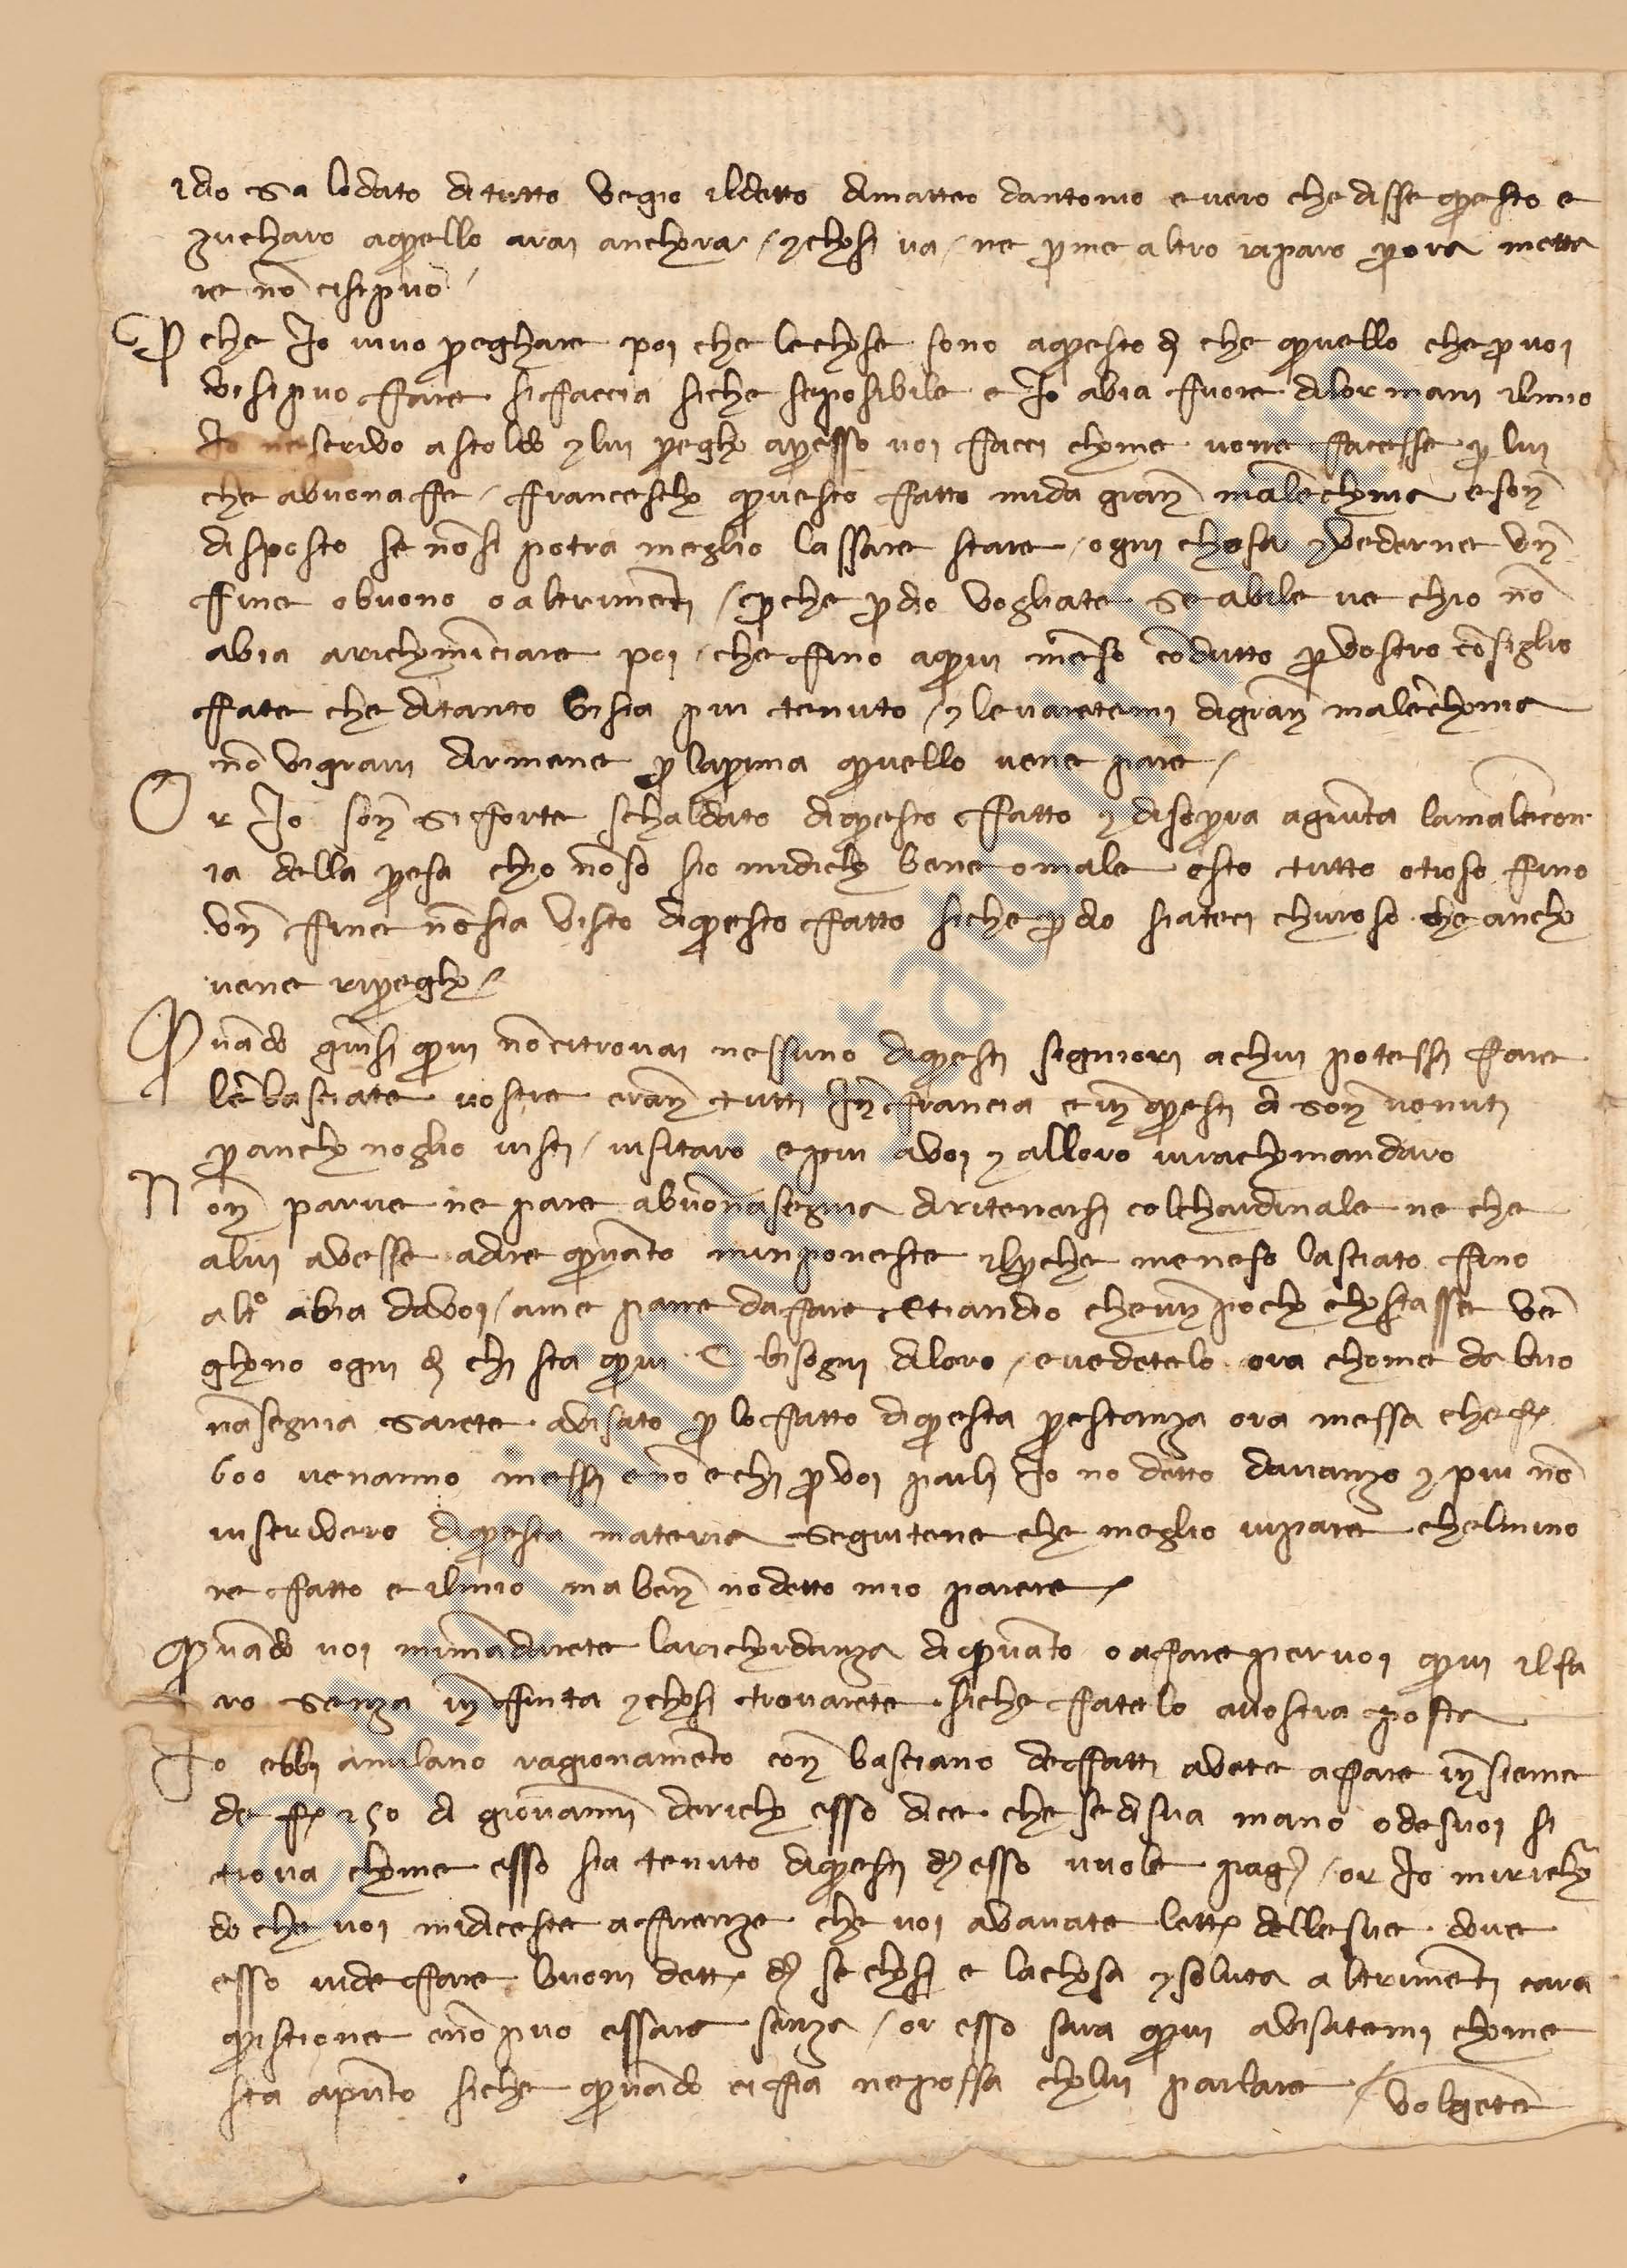 idio sia lodato di tutto vegio il detto di matteo dantonio e vero che disse questo e
zucharo a quello arai anchora / e chosi va / ne p me altro riparo p ora mette
re nō ci si puo /
P che Io vi vuo preghare poi che le chose sono a questo dì che quello che p voi
vi si puo fare si faccia siche se posibile e Io abia fuore di lor mani il mio
Io ne scrivo a stoldo e lui pregho apresso voi facci chome voi ne faceste p lui
che a buona fe / franciescho questo fatto mi da gran malēchonia e son
disposto se nō si potra meglio lassare stare / ogni chosa e vederne un
fine o buono o altrimenti / p che p dio vogliate se abile ve chio nō
abia arichominciare poi / che fino a qui mē so cōdutto p vostro cōsiglio
fate che di tanto vi sia piu tenuto / e levaretemi di gran malēchonia
nō vi gravi dirmene p la prima quello ve ne pare /
Or Io son si forte schaldato di questo fatto e di sopra agiunta la malēcon
ia della presa chio nō so sio mi dicho bene o male e sto tutto otioso fino
un fine nō sia visto di questo fatto siche p dio siateci churoso che ancho
ve ne ripregho /
Quādo giūsi qui nō ci trovai nessuno di questi signiori a chui potessi fare
lēbasciate vostre eran tutti In francia e in questi dì son venuti
p ancho nogli o visti / visitaro e piu a voi e alloro vi rachomandaro
Non parve ne pare a buōnasegnia di ritenersi col chardinale ne che
a lui avesse a dire quāto minponeste il p che me ne so lasciato fino
alt° abia da voi / a me pare da fare etiandio che un pocho chostasse vē
ghono ogni dì chi sta qui e bisogni di loro / e vedetelo ora chome da buo
nasegnia sarete avisato p lo fatto di questa prestanza ora messa che f.
600 ve nanno messi e nō e chi p voi parli Io no detto davanzo e piu nō
vi scrivero di questa materia seguitene che meglio vi pare chel mino
re fatto e il mio ma ben no detto mio parere /
Quādo voi mi mādarete la richordanza di quāto o affare per voi qui il fa
ro senza in finta e chosi trovarete siche fatelo a vostra posta
Io ebbi a milano ragionamēto con basciano de fatti avete affare insieme
de f. 250 di giovanni dericho esso dice che se di sua mano o de suoi si
trova chome esso sia tenuto di questi d. esso vuole pag. / or Io mi richor
do che voi mi diceste a firenze che voi avavate lett. delle sue dove
esso vi de fare buoni dett. d. se chosi e la chosa e soluta altrimenti cara
quistione e nō puo essare senza / or esso sara qui avisatemi chome
sta apūto siche quādo ci fia ne possa cholui parlare / volgetē
© Archivio di Stato di Prato